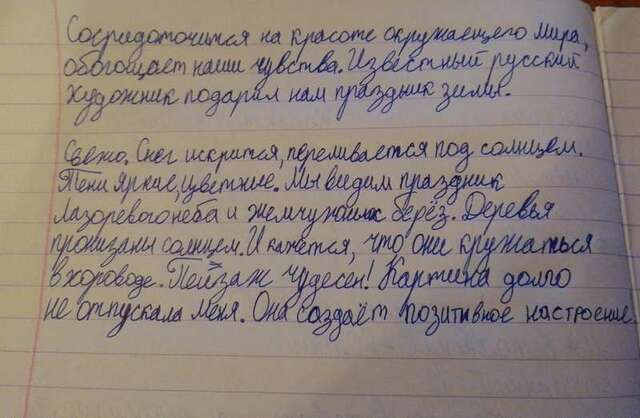 Сосридоточится на красоте окружаещего мира,
обогощает наши чувства. Известный русский
художник подарил нам праздник зимы.
Свежо. Снег искрится, переливается под солнцем.
Тени яркие, цветные. Мы видим праздник
лазоревого неба и жемчужных берёз. Деревья
пронизаны солнцем. И кажется, что они кружаться
в хороводе. Пейзаж чудесен! Картина долго
не отпускала меня. Она создаёт позитивное настроение